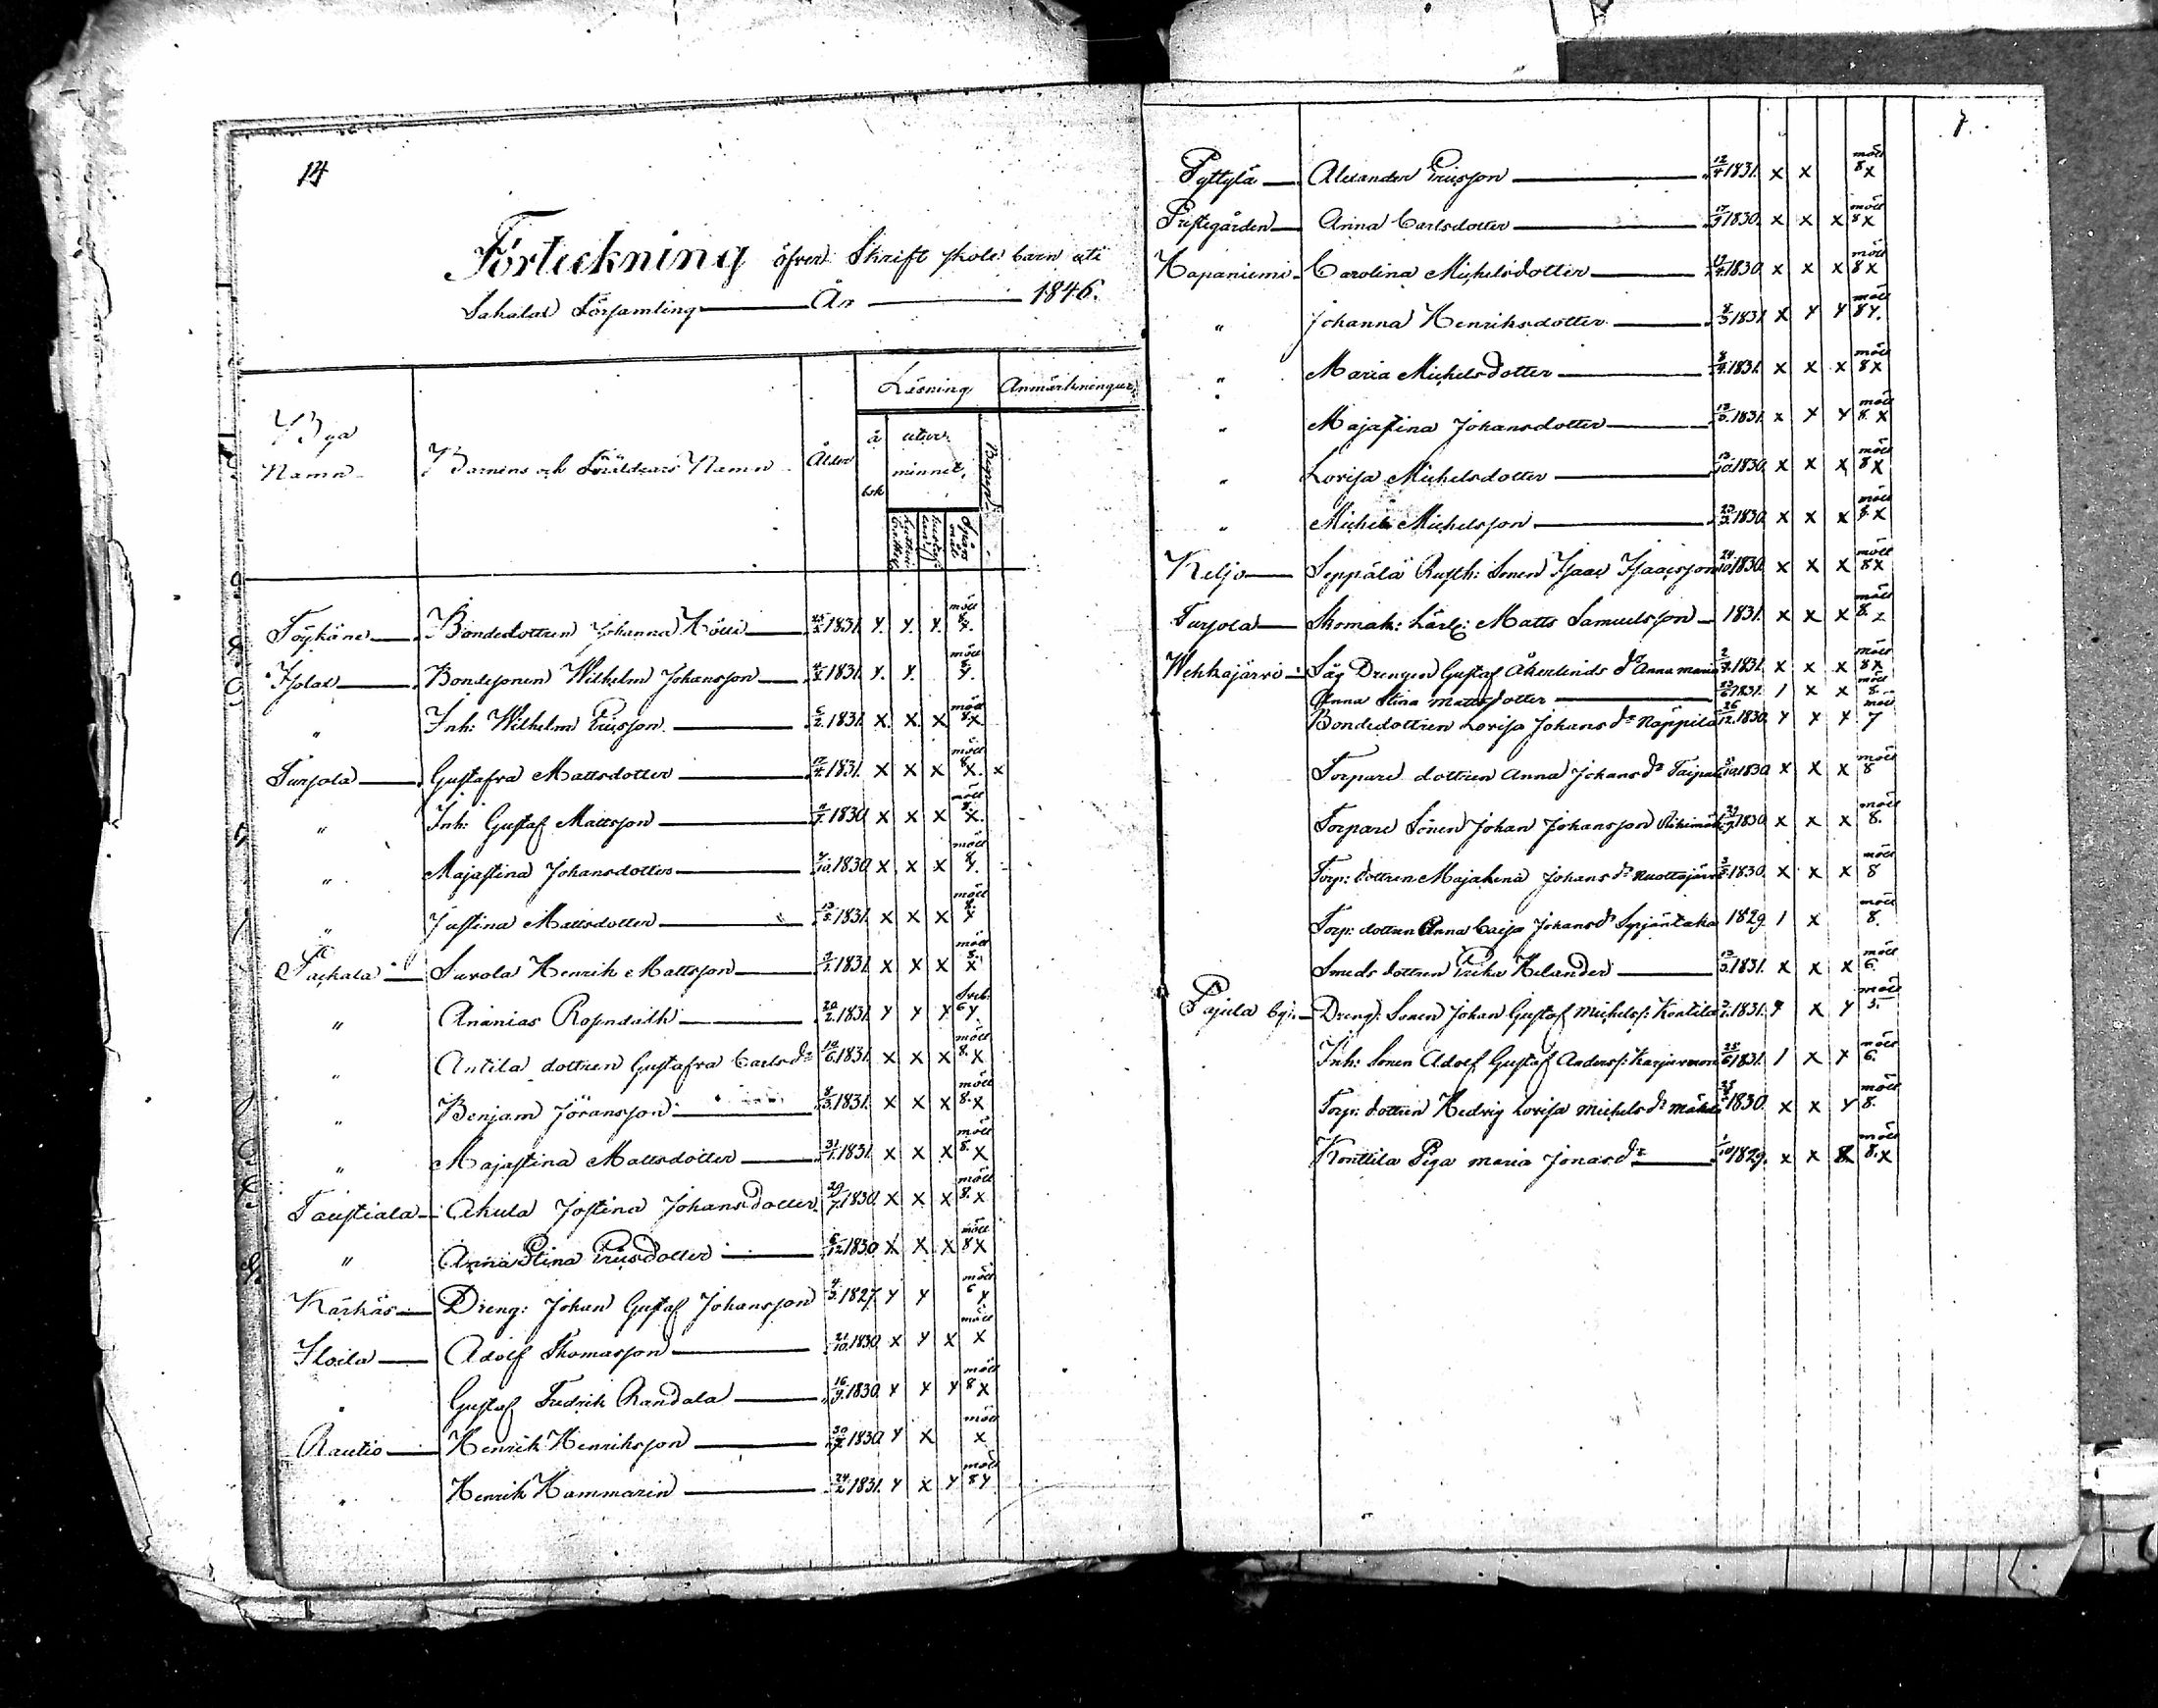 14
Förteckning öfver Skrift skole barn uti
Sahalax Församling År 1846.
Bya Namn
Barnens och Föräldrars Namn
Ålder
Läsning
Anmärkningar
å bok
utur minnet
Begrepp
Töykäne Bondedottren Johanna 25/2 1831. x. x. x. mött 8 x.
Isolax Bondesonen Wilhelm Johansson 1831 x. x. mött 8 x.
" Inh: Wilhelm Ericsson 6/2. 1831. x. x. x mött 8x
Turjola Gustafva Mattsdotter 17/4. 1831. x x x mött 8 x. x
" Inh: Gustaf Mattsson 1830 x x x mött 8. x.
" Majastina Johansdotter 1830 x x x mött 8 x.
" Justina Mattsdotter 13/5. 1831. x x x mött 8. x
Packala Surola Henrik Mattsson 1831 x x x mött 8. x
" Ananias Rosendalh 20/2. 1831. x x x 6 x.
" Antila dottren Gustafva Carlsdr 19/6. 1831. x x x mött 8. x
" Benjam Jöransson 8/3. 1831. x x x mött 8. x
" Majastina Mattsdotter 31/1. 1831. x x x mött 8. x
Taustiala Ahula Justina Johansdotter 29/7. 1830. x x x mött 8. x
" Anna Stina Ericsdotter 6/12 1830 x x x mött 8 x
Kärkäs Dreng: Johan Gustaf Johansson 4/3. 1827. x x mött 6 x
Iloila Adolf Thomasson 21/10. 1830. x x x mött x
" Gustaf Fredrik Randala 16/9. 1830. x x x mött 8 x
Rautio Henrik Henriksson 1830. x x mött x
" Henrik Hammarin 24/2. 1831. x x x mött 8 x
7.
Pyttylä Alexander Ericsson 12/4 1831. x x mött 8 x
Prestegården Anna Carlsdotter 17/9 1830. x x x mött 8 x
Hapaniemi Carolina Michelsdotter 1830. x x x mött 8 x
" Johanna Henriksdotter 8/3 1831. x x x mött 8 x.
" Maria Michelsdotter 1831. x x x mött 8 x
" Majastina Johansdotter 1831. x x x mött 8. x
" Lovisa Michelsdotter 13/10. 1830. x x x mött 8 x
" Michel Michelsson 23/3. 1830. x x x mött 8 x
Keljo Seppälä Rusth: Sonen Isaac Isaacsson 24/10 1830. x x x mött 8 x
Turjola Skomak: Lärl: Matts Samuelsson 1831. x x x mött 8. x
Wehkajärvi Säg Drengen Gustaf Åkerlinds dr Anna Maria 1831. x x x mött 8 x
Anna Stina Mattsdotter 1831. 1 x x mött 8
Bondedottren Lovisa Johans dr Näppilä 26/12. 1830. x x x mött 7
Torpare dottren Anna Johans dr Taipale 1830. x x x mött 8
Torpare Sonen Johan Johansson 1830 x x x mött 8.
Torp: dottren Majalena Johans dr Nuottajärvi 1830. x x x mött 8
Torp: dottren Anna Caisa Johans dr 1829 1 x mött 8.
Smeds dottren Erika Helander 13/3. 1831. x x x mött 6.
Pajula by: Dreng: Sonen Johan Gustaf Michelss: Konttila 1831. x x x mött 5.
Inh: Sonen Adolf Gustaf Anderss: 25/6 1831. 1 x x mött 6.
Torp: dottren Hedvig Lovisa Michels dr 1830. x x x mött 8.
Konttila Piga Maria Jonas dr 1/10 1829. x x mött 8. x